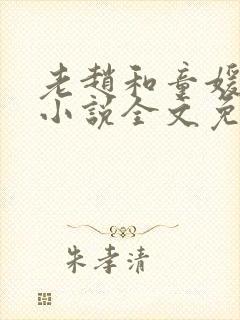 老趙和童媛
小說全文免
朱孝清